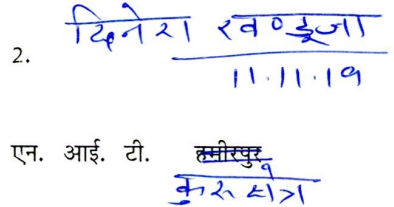 दिनेश खण्डूजा
2.
11.11.19
एन. आई. टी. हमीरपुर
कुरुक्षेत्र